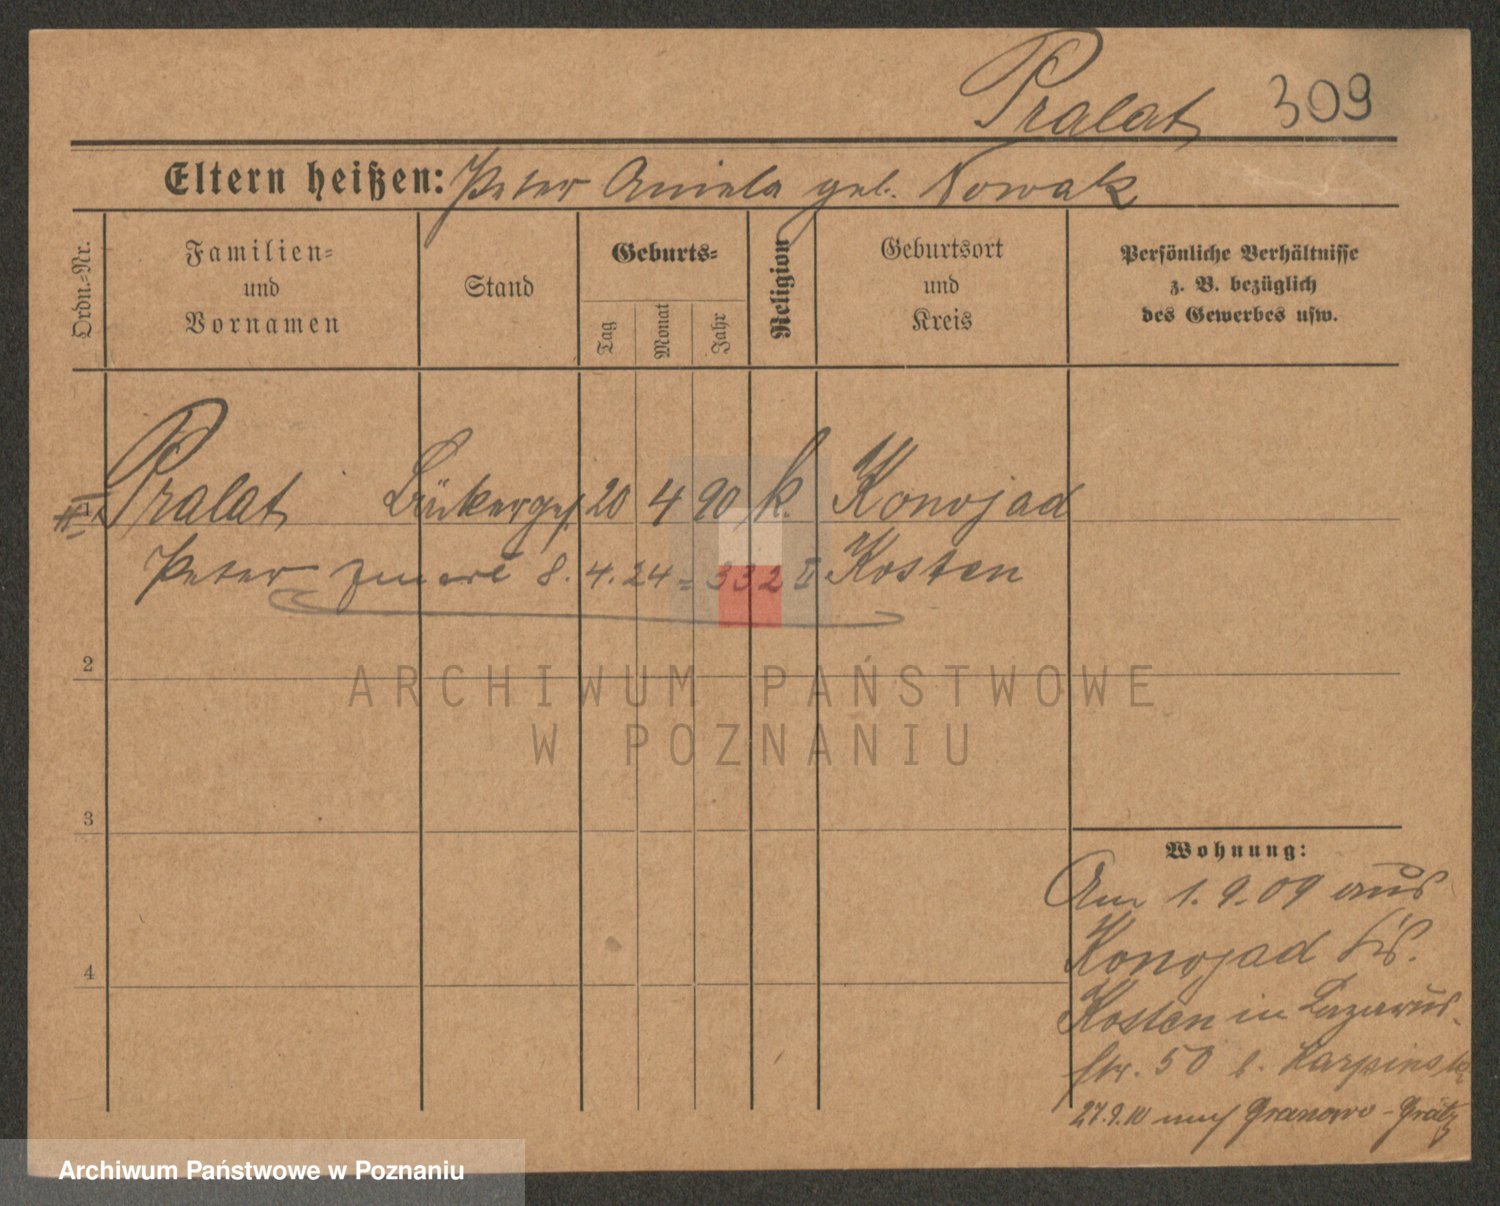 Pralat 309
Eltern heißen: Peter Aniela geb. Nowak
Ordn.-Nr.
Familien-
und
Vornamen
Stand
Geburts-
Tag
Monat
Jahr
Religion
Geburtsort
und
Kreis
Persönliche Verhältnisse
z. B. bezüglich
des Gewerbes usw.
1 Pralat Bäckerges. 20 4 90 k. Konojad
Peter zmarł 8.4.24 = 332 II Kosten
2
ARCHIWUM PAŃSTWOWE
W POZNANIU
3
4
Wohnung:
Am 1.9.09 aus
Konojad Krs.
Kosten in Lazarus-
str. 50 b. Karpinski
27.9.10 nach Granowo - Grätz
Archiwum Państwowe w Poznaniu